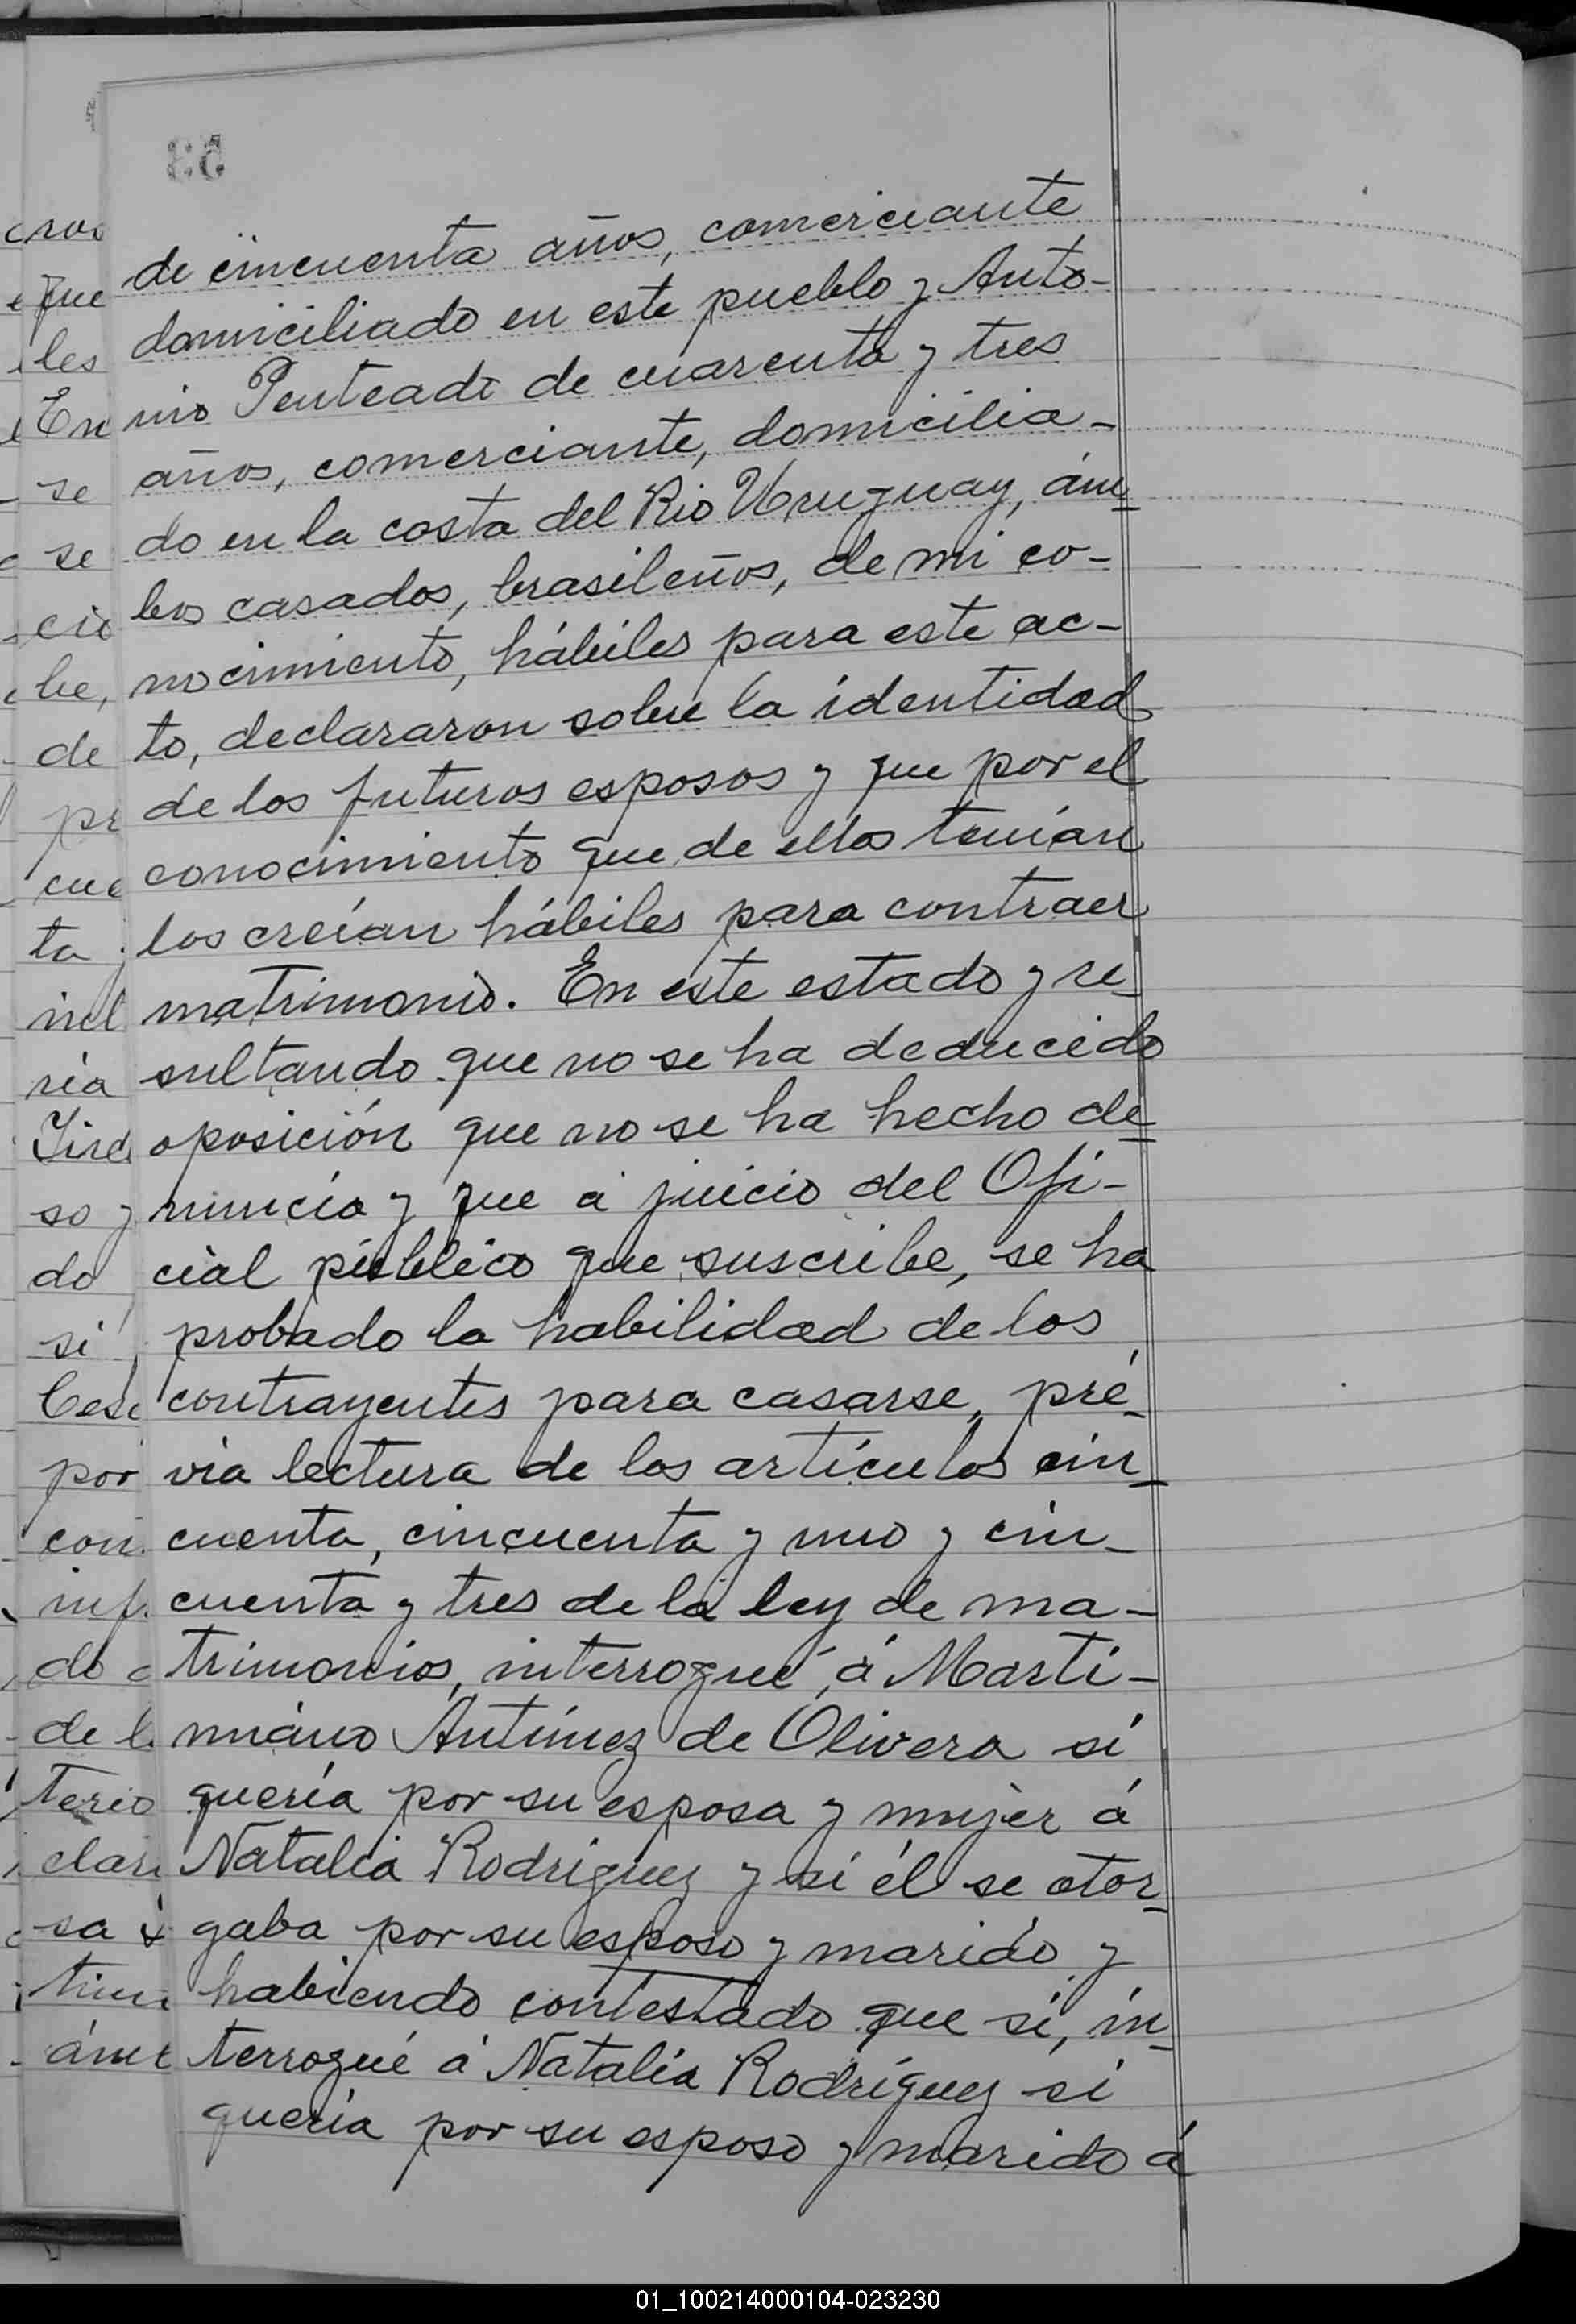 de cincuenta años, comerciante
domiciliado en este pueblo y Anto-
nio Penteado de cuarenta y tres
años, comerciante, domicilia-
do en la costa del Rio Uruguay, ám-
bos casados, brasileños, de mi co-
nocimiento, hábiles para este ac-
to, declararon sobre la identidad
de los futuros esposos y que por el
conocimiento que de ellos tenían
los creían hábiles para contraer
matrimonio. En este estado y re-
sultando que no se ha deducido
oposición que no se ha hecho de-
nuncia y que á juicio del Ofi-
cial público que suscribe, se ha
probado la habilidad de los
contrayentes para casarse, pré-
via lectura de los artículos cin-
cuenta, cincuenta y uno y cin-
cuenta y tres de la ley de ma-
trimonios, interrogué, á Marti-
miano Antúnez de Olivera si
quería por su esposa y mujer á
Natalia Rodriguez y si él se otor-
gaba por su esposo y marido y
habiendo contestado que si, in-
terrogué á Natalia Rodríguez si
quería por su esposo y marido á
01_100214000104-023230